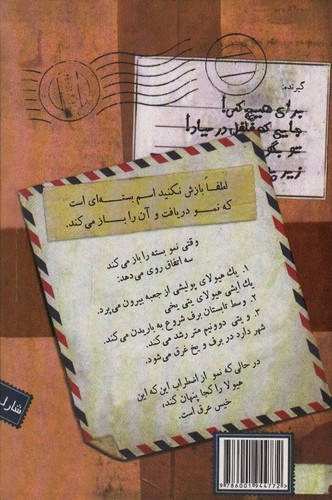 گیرنده:
برای هیچ کس!
جایی که فلفل در بیاد!
تو بگو
زیر
لطفاً بازش نکنید اسم بسته‌ای است
که نمو دریافت و آن را باز می‌کند.
وقتی نمو بسته را باز می‌کند
سه اتفاق روی می‌دهد:
۱. یک هیولای پولیشی از جعبه بیرون می‌پرد.
یک آبشی هیولای یتی یخی
۲. وسط تابستان برف شروع به باریدن می‌کند.
۳. و یتی دوونیم متر رشد می‌کند.
شهر دارد در برف و یخ غرق می‌شود.
در حالی که نمو از اضطراب این که این
هیولا را کجا پنهان کند،
خیس عرق است.
شارل
9786001944772